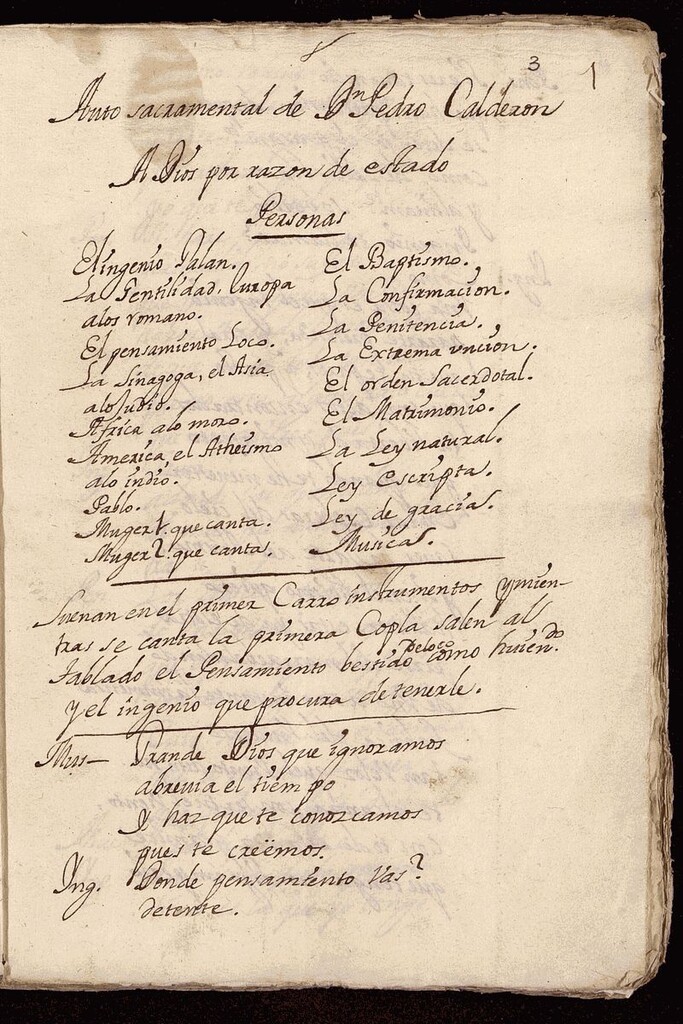 3
1
Auto sacramental de Dn Pedro Calderon
A Dios por razon de estado
Personas
El ingenio Galan.
La Gentilidad, Europa
alos romano.
El pensamiento Loco.
La Sinagoga, el Asia
alo Judio.
Africa alo moro.
America el Atheismo
alo indio.
Pablo.
Muger 1. que canta.
Muger 2. que canta.
El Baptismo.
La Confirmacion.
La Penitencia.
La Extrema uncion.
El orden Sacerdotal.
El Matrimonio.
La Ley natural.
Ley escripta.
Ley de gracia.
Musicas.
Suenan en el primer Carro instrumentos y mien-
tras se canta la primera Copla salen al
tablado el Pensamiento bestido de loco como huiendo
y el ingenio que procura detenerle.
Mus- Grande Dios que ignoramos
abrevia el tiempo
Y haz que te conozcamos
pues te creëmos.
Ing. Donde pensamiento vas?
detente.